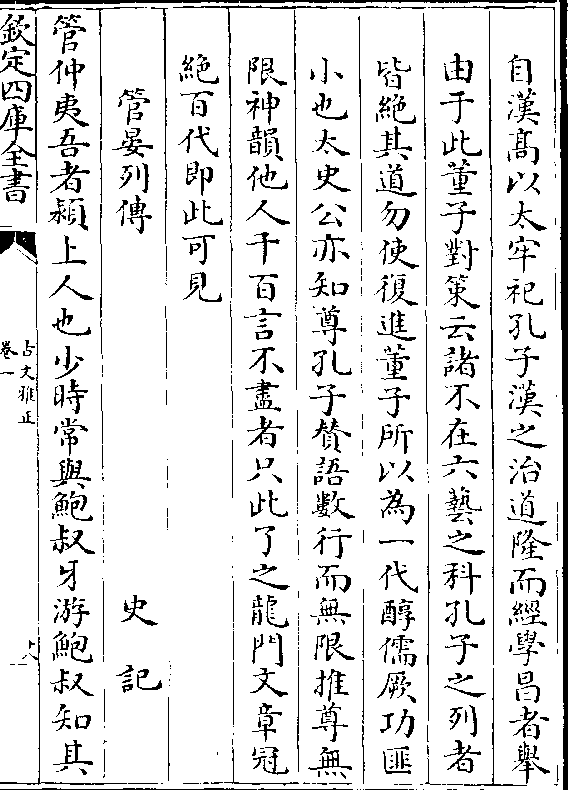 自漢髙以太牢祀孔子漢之治道隆而經學昌者舉
由于此董子對策云諸不在六藝之科孔子之列者
皆絶其道勿使復進董子所以為一代醇儒厥功匪
小也太史公亦知尊孔子賛語數行而無限推尊無
限神韻他人千百言不盡者只此了之龍門文章冠
絶百代即此可見
管晏列傳 史記
管仲夷吾者潁上人也少時常與鮑叔牙游鮑叔知其
欽定四庫全書
古文雅正
卷一